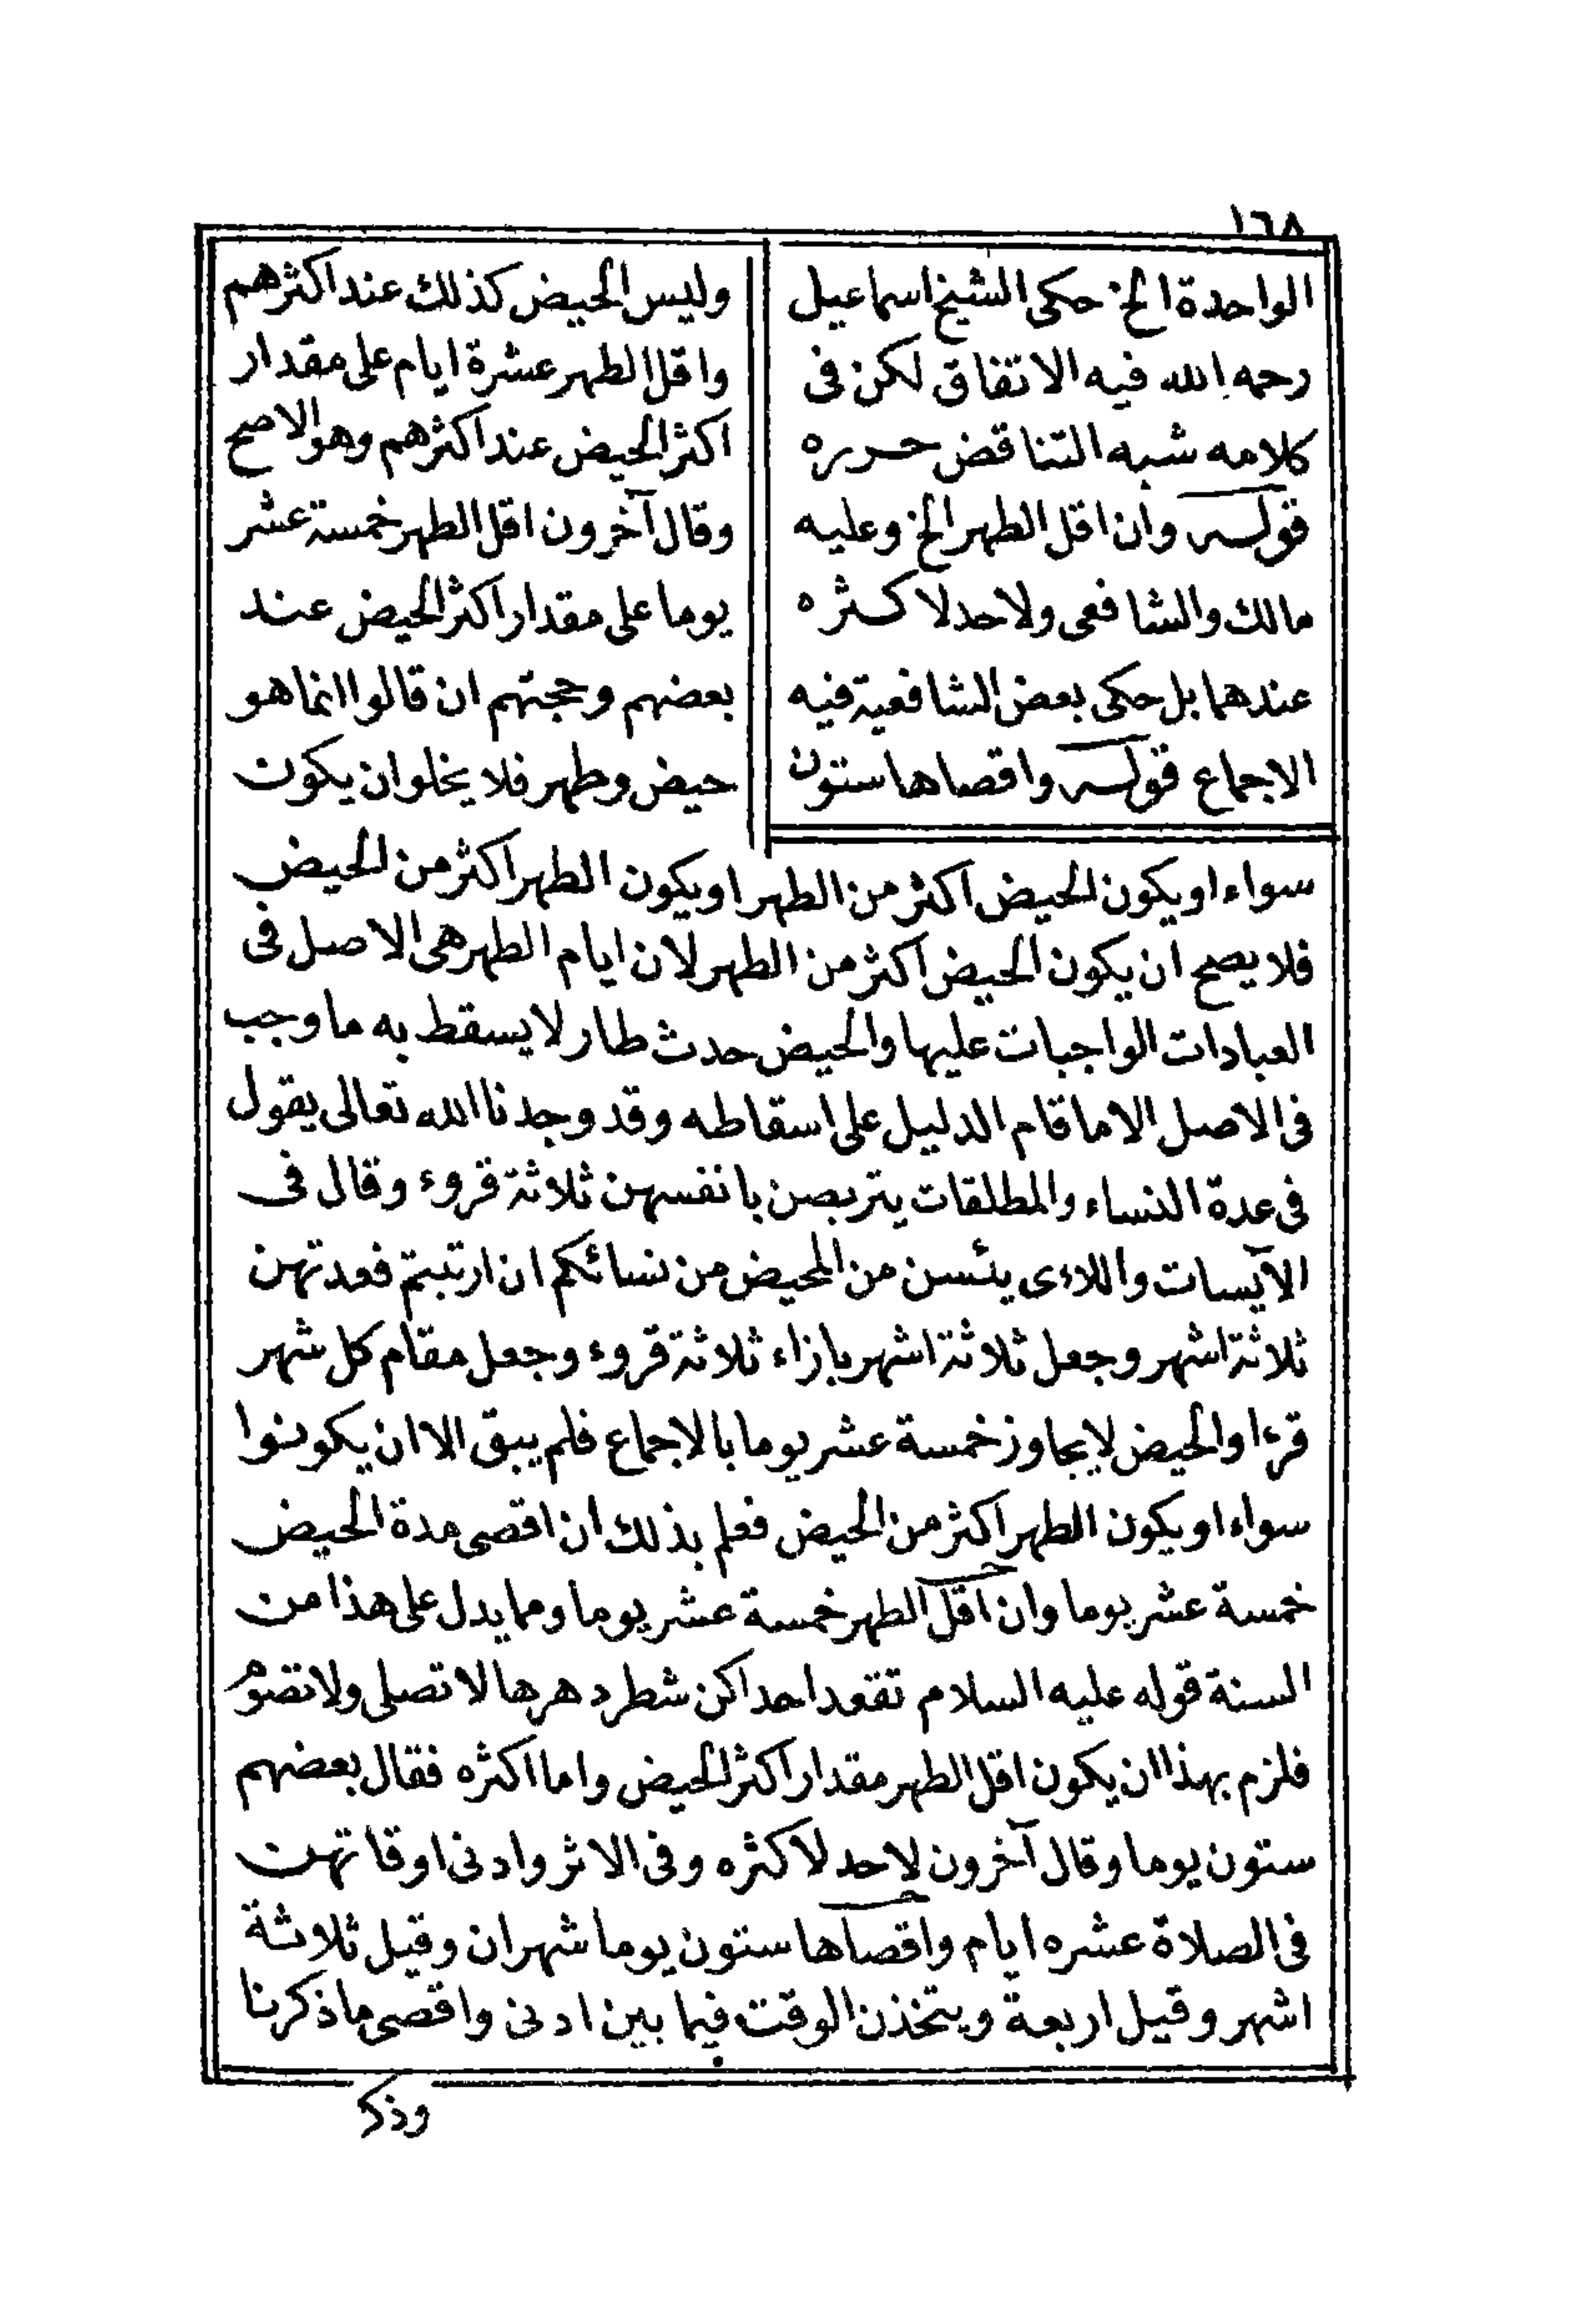 ١٦٨
الواحدة الخ حكى الشيخ اسماعيل
رحمه الله فيه الاتفاق لكن فى
كلامه شبه التناقض حرره
قوله وان اقل الطهر الخ وعليه
مالك والشافعى ولا حد لاكثره
عندهما بل حكى بعض الشافعية فيه
الاجماع قوله واقصاها ستون
وليس الحيض كذلك عند اكثرهم
واقل الطهر عشرة ايام على مقدار
اكثر الحيض عند اكثرهم وهو الاصح
وقال آخرون اقل الطهر خمسة عشر
يوما على مقدار اكثر الحيض عند
بعضهم وحجتهم ان قالوا انما هو
حيض وطهر فلا يخلو ان يكون
سواء او يكون الحيض اكثر من الطهر او يكون الطهر اكثر من الحيض
فلا يصح ان يكون الحيض اكثر من الطهر لان ايام الطهر هى الاصل فى
العبادات الواجبات عليها والحيض حدث طار لا يسقط به ما وجب
فى الاصل الا ما قام الدليل على اسقاطه وقد وجدنا الله تعالى يقول
فى عدة النساء والمطلقات يتربصن بانفسهن ثلاثة قروء وقال فى
الآيسات واللاءى يئسن من المحيض من نسائكم ان ارتبتم فعدتهن
ثلاثة اشهر وجعل ثلاثة اشهر بازاء ثلاثة قروء وجعل مقام كل شهر
قرءا والحيض لا يجاوز خمسة عشر يوما بالاجماع فلم يبق الا ان يكونوا
سواء او يكون الطهر اكثر من الحيض فعلم بذلك ان اقصى مدة الحيض
خمسة عشر يوما وان اقل الطهر خمسة عشر يوما ومما يدل على هذا من
السنة قوله عليه السلام تقعد احداكن شطر دهرها لا تصلى ولا تصوم
فلزم بهذا ان يكون اقل الطهر مقدار اكثر الحيض واما اكثره فقال بعضهم
ستون يوما وقال آخرون لا حد لاكثره وفى الاثر وادنى اوقاتهن
فى الصلاة عشره ايام واقصاها ستون يوما شهران وقيل ثلاثة
اشهر وقيل اربعة ويتخذن الوقت فيما بين ادنى واقصى ما ذكرنا
وذكر